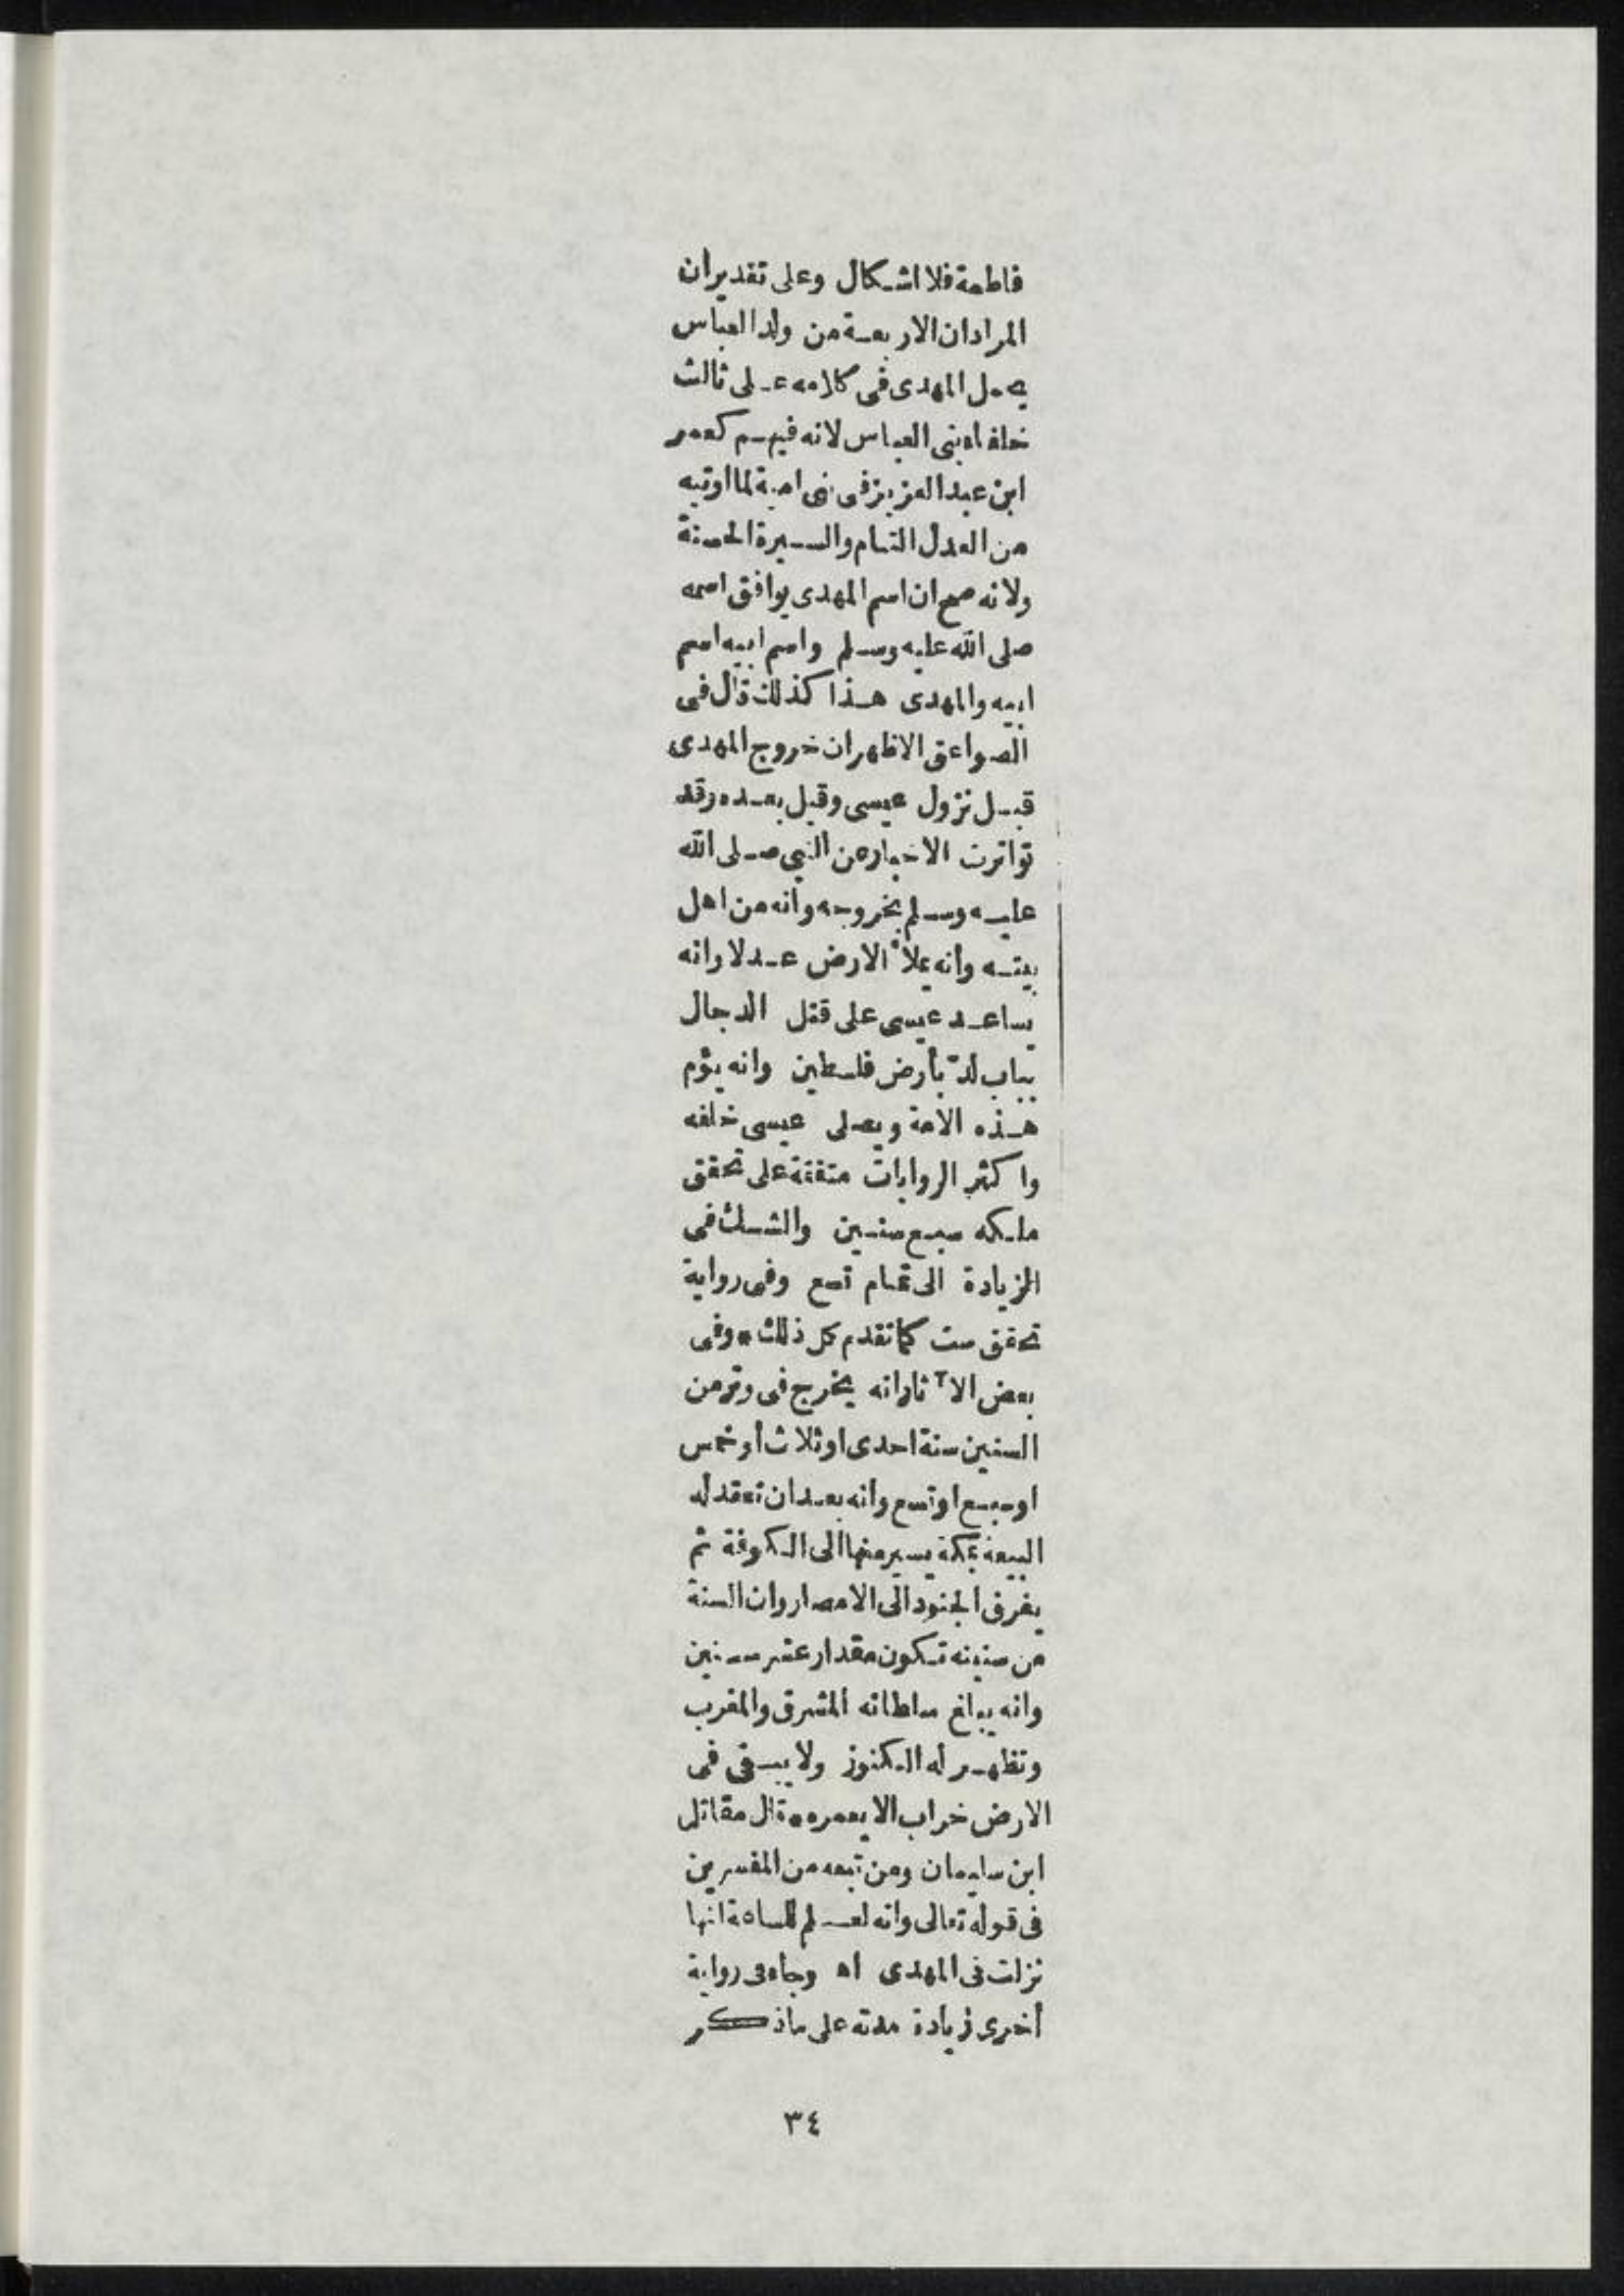 فاطمة فلا اشكال وعلى تقدير ان
المراد ان الاربعة من ولد العباس
يحمل المهدى فى كلامه على ثالث
خلفاء بنى العباس لانه فيهم كعمر
ابن عبد العزيز فى بنى امية لما اوتيه
من العدل التام والسيرة الحسنة
ولانه صح ان اسم المهدى يوافق اسمه
صلى الله عليه وسلم واسم ابيه اسم
ابيه والمهدى هذا كذلك قال فى
الصواعق الاظهر ان خروج المهدى
قبل نزول عيسى وقيل بعده وقد
تواترت الاخبار عن النبي صلى الله
عليه وسلم بخروجه وانه من اهل
بيته وأنه يملأ الارض عدلا وانه
يساعد عيسى على قتل الدجال
بباب لدّ بأرض فلسطين وانه يؤم
هذه الامة ويصلى عيسى خلفه
واكثر الروايات متفقة على تحقق
ملكه سبع سنين والشك فى
الزيادة الى تمام تسع وفى رواية
تحقق ست كما تقدم كل ذلك * وفى
بعض الآثار انه يخرج فى وتر من
السنين سنة احدى او ثلاث أو خمس
او سبع او تسع وانه بعد ان تعقد له
البيعة بمكة يسير منها الى الكوفة ثم
يفرق الجنود الى الامصار وان السنة
من سنينه تكون مقدار عشر سنين
وانه يبلغ سلطانه المشرق والمغرب
وتظهر له الكنوز ولا يبقى فى
الارض خراب الا يعمره * قال مقاتل
ابن سليمان ومن تبعه من المفسرين
فى قوله تعالى وانه لعلم للساعة انها
نزلت فى المهدى اه وجاء فى رواية
أخرى زيادة مدته على ماذكر
٣٤